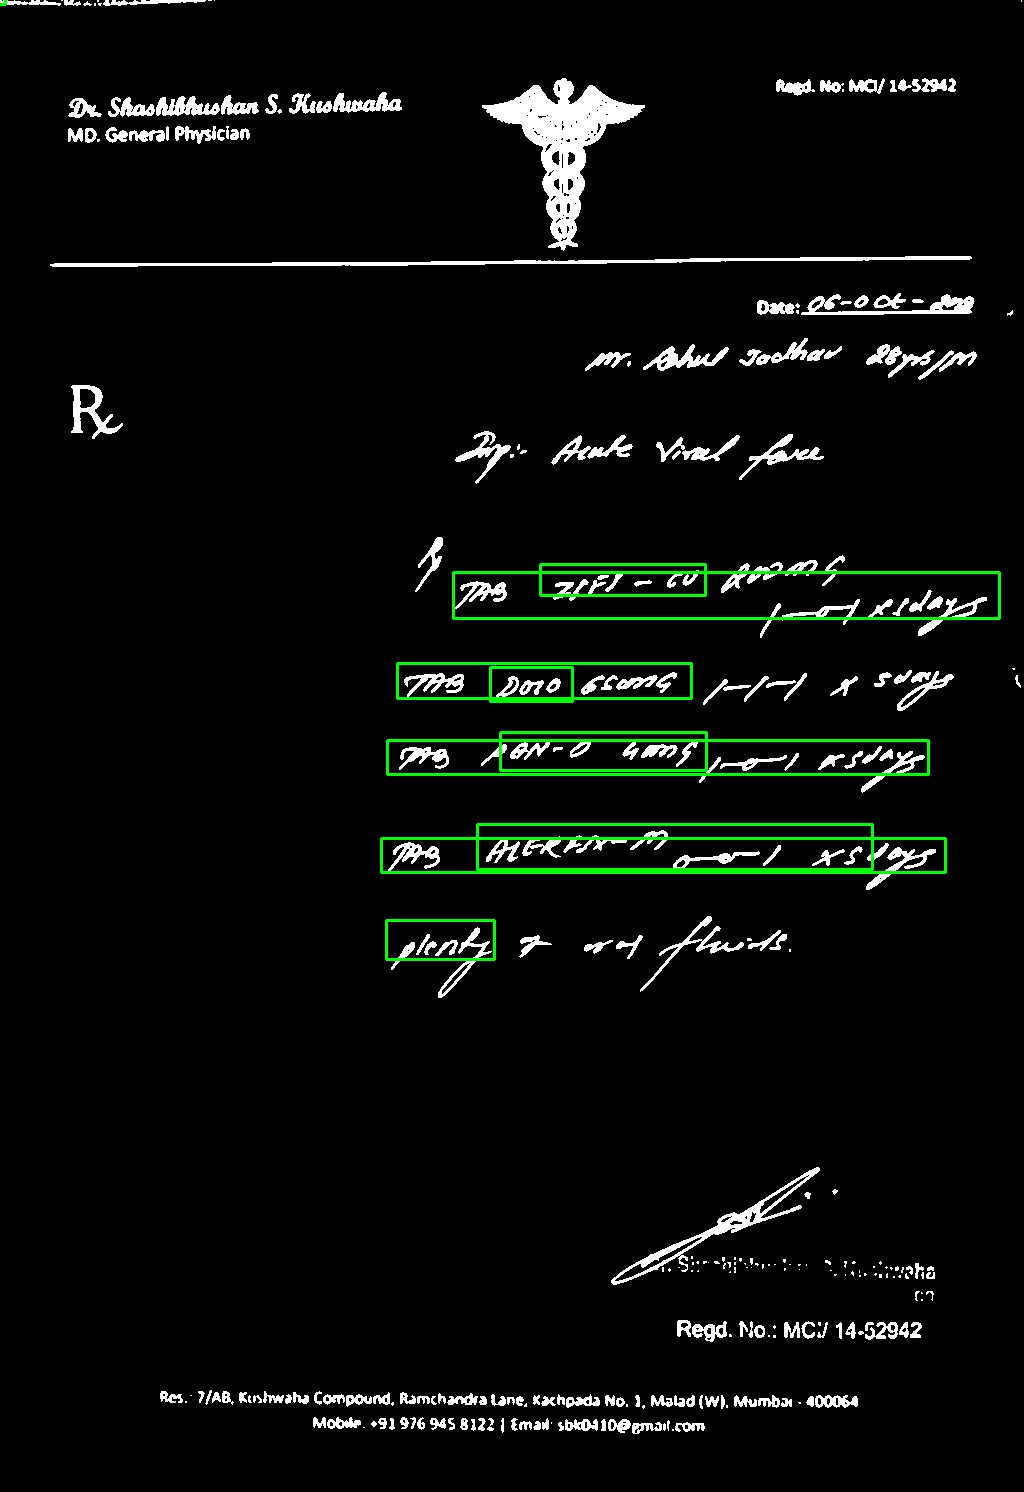 Dr. Shashibhushan S. Kushwaha
MD. General Physician
Regd. No: MCI/ 14-52942
Date: 06-Oct-
Mr. Jadhav 28yrs/M
Rx
Imp:- Acute Viral fever
Rx
TAB - CV 200MG
1-0-1 x 5days
TAB DOLO 650MG 1-1-1 x 5days
TAB PAN-D 40MG 1-0-1 x 5days
TAB M 0-0-1 x 5days
plenty of oral fluids.
Kushwaha
Regd. No.: MCI/ 14-52942
Res.: 7/AB, Kushwaha Compound, Ramchandra Lane, Kachpada No. 1, Malad (W), Mumbai - 400064
Mobile: +91 976 945 8122 | Email: sbk0410@gmail.com